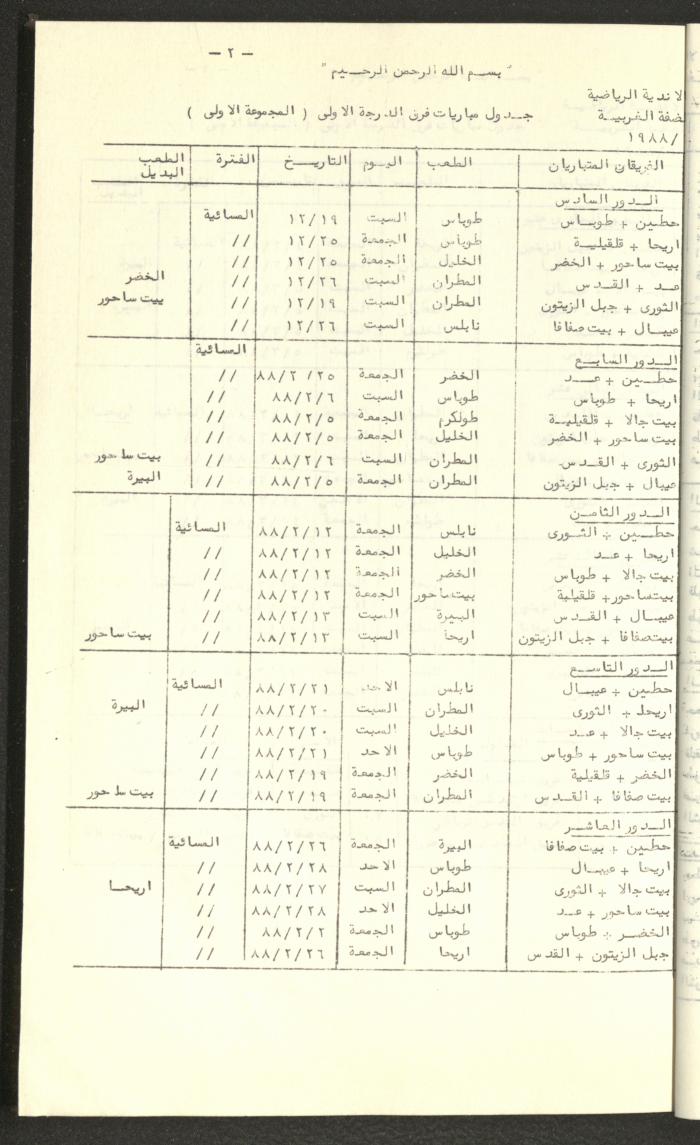 — ٢ —
" بسم الله الرحمن الرحيم "
الاندية الرياضية
ضفة الغربية
جدول مباريات فرق الدرجة الاولى ( المجموعة الاولى )
/١٩٨٨
الفريقان المتباريان الملعب اليوم التاريخ الفترة الملعب البديل
الدور السادس
حطين + طوباس طوباس السبت ١٢/١٩ المسائية
اريحا + قلقيلية طوباس الجمعة ١٢/٢٥ //
بيت ساحور + الخضر الخليل الجمعة ١٢/٢٥ //
عد + القدس المطران السبت ١٢/٢٦ // الخضر
الثورى + جبل الزيتون المطران السبت ١٢/١٩ // بيت ساحور
عيبال + بيت صفافا نابلس السبت ١٢/٢٦ //
الدور السابع المسائية
حطين + عد الخضر الجمعة ٨٨/٢/٢٥ //
اريحا + طوباس طوباس السبت ٨٨/٢/٦ //
بيت جالا + قلقيلية طولكرم الجمعة ٨٨/٢/٥ //
بيت ساحور + الخضر الخليل الجمعة ٨٨/٢/٥ //
الثورى + القدس المطران السبت ٨٨/٢/٦ // بيت ساحور
عيبال + جبل الزيتون المطران الجمعة ٨٨/٢/٥ // البيرة
الدور الثامن
حطين + الثورى نابلس الجمعة ٨٨/٢/١٢ المسائية
اريحا + عد الخليل الجمعة ٨٨/٢/١٢ //
بيت جالا + طوباس الخضر الجمعة ٨٨/٢/١٢ //
بيت ساحور + قلقيلية بيت ساحور الجمعة ٨٨/٢/١٢ //
عيبال + القدس البيرة السبت ٨٨/٢/١٣ //
بيت صفافا + جبل الزيتون اريحا السبت ٨٨/٢/١٣ // بيت ساحور
الدور التاسع
حطين + عيبال نابلس الاحد ٨٨/٢/٢١ المسائية
اريحا + الثورى المطران السبت ٨٨/٢/٢٠ // البيرة
بيت جالا + عد الخليل السبت ٨٨/٢/٢٠ //
بيت ساحور + طوباس طوباس الاحد ٨٨/٢/٢١ //
الخضر + قلقيلية الخضر الجمعة ٨٨/٢/١٩ //
بيت صفافا + القدس المطران الجمعة ٨٨/٢/١٩ // بيت ساحور
الدور العاشر
حطين + بيت صفافا البيرة الجمعة ٨٨/٢/٢٦ المسائية
اريحا + عيبال طوباس الاحد ٨٨/٢/٢٨ //
بيت جالا + الثورى المطران السبت ٨٨/٢/٢٧ // اريحا
بيت ساحور + عد الخليل الاحد ٨٨/٢/٢٨ //
الخضر + طوباس طوباس الجمعة ٨٨/٢/٢ //
جبل الزيتون + القدس اريحا الجمعة ٨٨/٢/٢٦ //